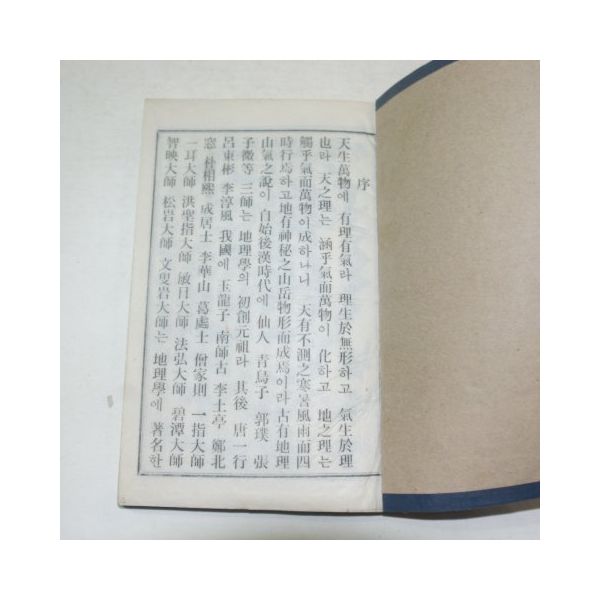 序
天生萬物에 有理有氣라 理生於無形하고 氣生於理
也라 天之理는 涵乎氣而萬物이 化하고 地之理는
觸乎氣而萬物이 成하나니 天有不測之寒暑風雨而四
時行焉하고 地有神秘之山岳物形而成焉이라 古有地理
山氣之說이 自始後漢時代에 仙人 靑烏子 郭璞 張
子微等 三師는 地理學의 初創元祖라 其後 唐一行
呂東彬 李淳風 我國에 玉龍子 南師古 李土亭 鄭北
窓 朴相熙 成居士 李華山 葛處士 僧家則 一指大師
一耳大師 洪聖指大師 敏目大師 法弘大師 碧潭大師
智映大師 松岩大師 文叟岩大師는 地理學에 著名한